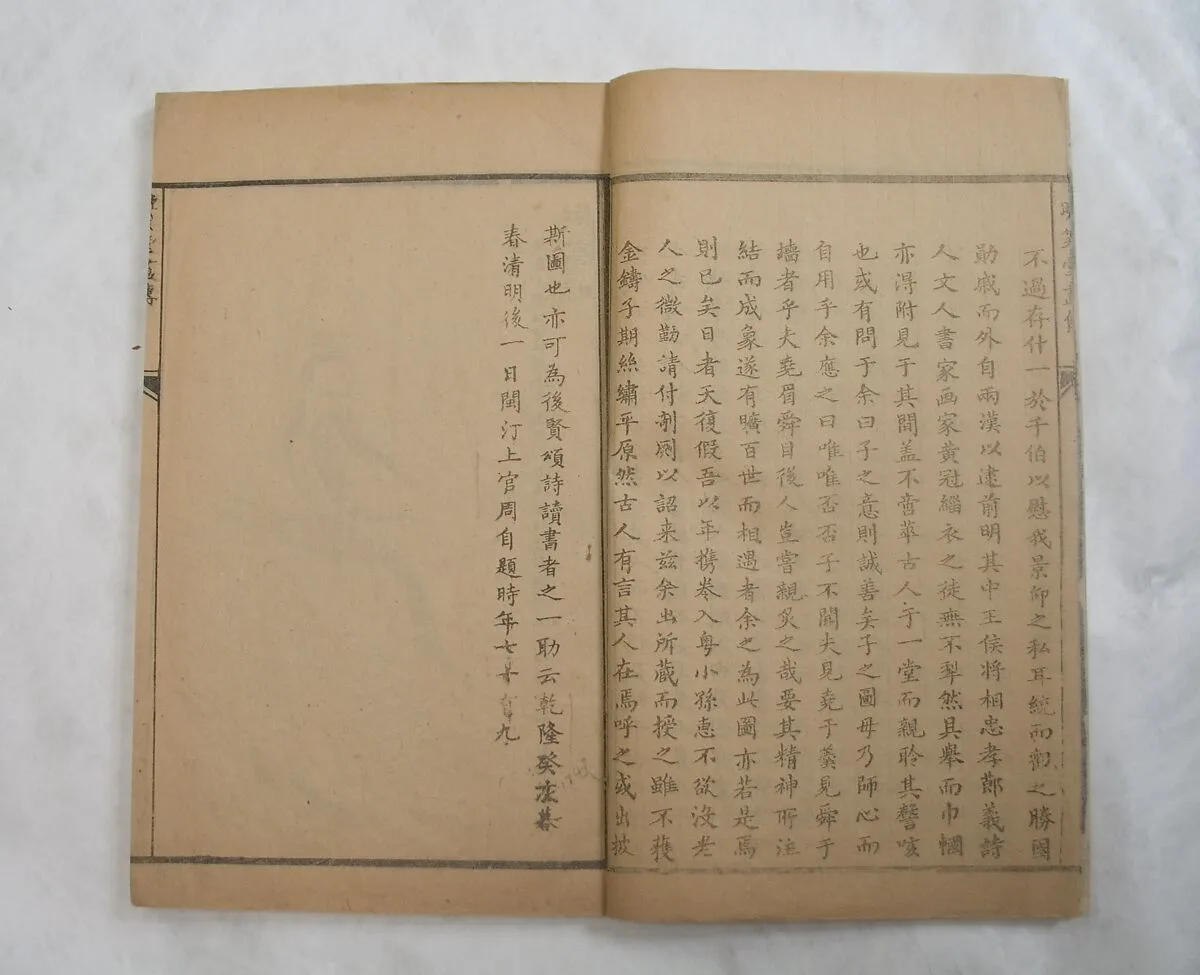 不過存什一於千伯以慰我景仰之私耳統而勸之勝國
勛戚而外自兩漢以逮前明其中王侯將相忠孝節義詩
人文人書家画家黄冠緇衣之徒無不犁然具舉而巾幗
亦得附見于其間盖不啻萃古人于一堂而親聆其謦咳
也或有問于余曰子之意則誠善矣子之圖毋乃師心而
自用乎余應之曰唯唯否否子不聞夫見堯于羹見舜于
墻者乎夫堯眉舜目後人豈嘗親炙之哉要其精神所注
結而成象遂有曠百世而相遇者余之為此圖亦若是焉
則已矣日者天復假吾以年携岺入粤小孫惠不欲没老
人之微勤請付剞劂以詔来兹余出所蔵而授之雖不獲
金鑄子期絲繡平原然古人有言其人在焉呼之或出披
斯圖也亦可為後賢頌詩讀書者之一助云乾隆癸亥暮
春清明後一日閩汀上官周自題時年七十有九